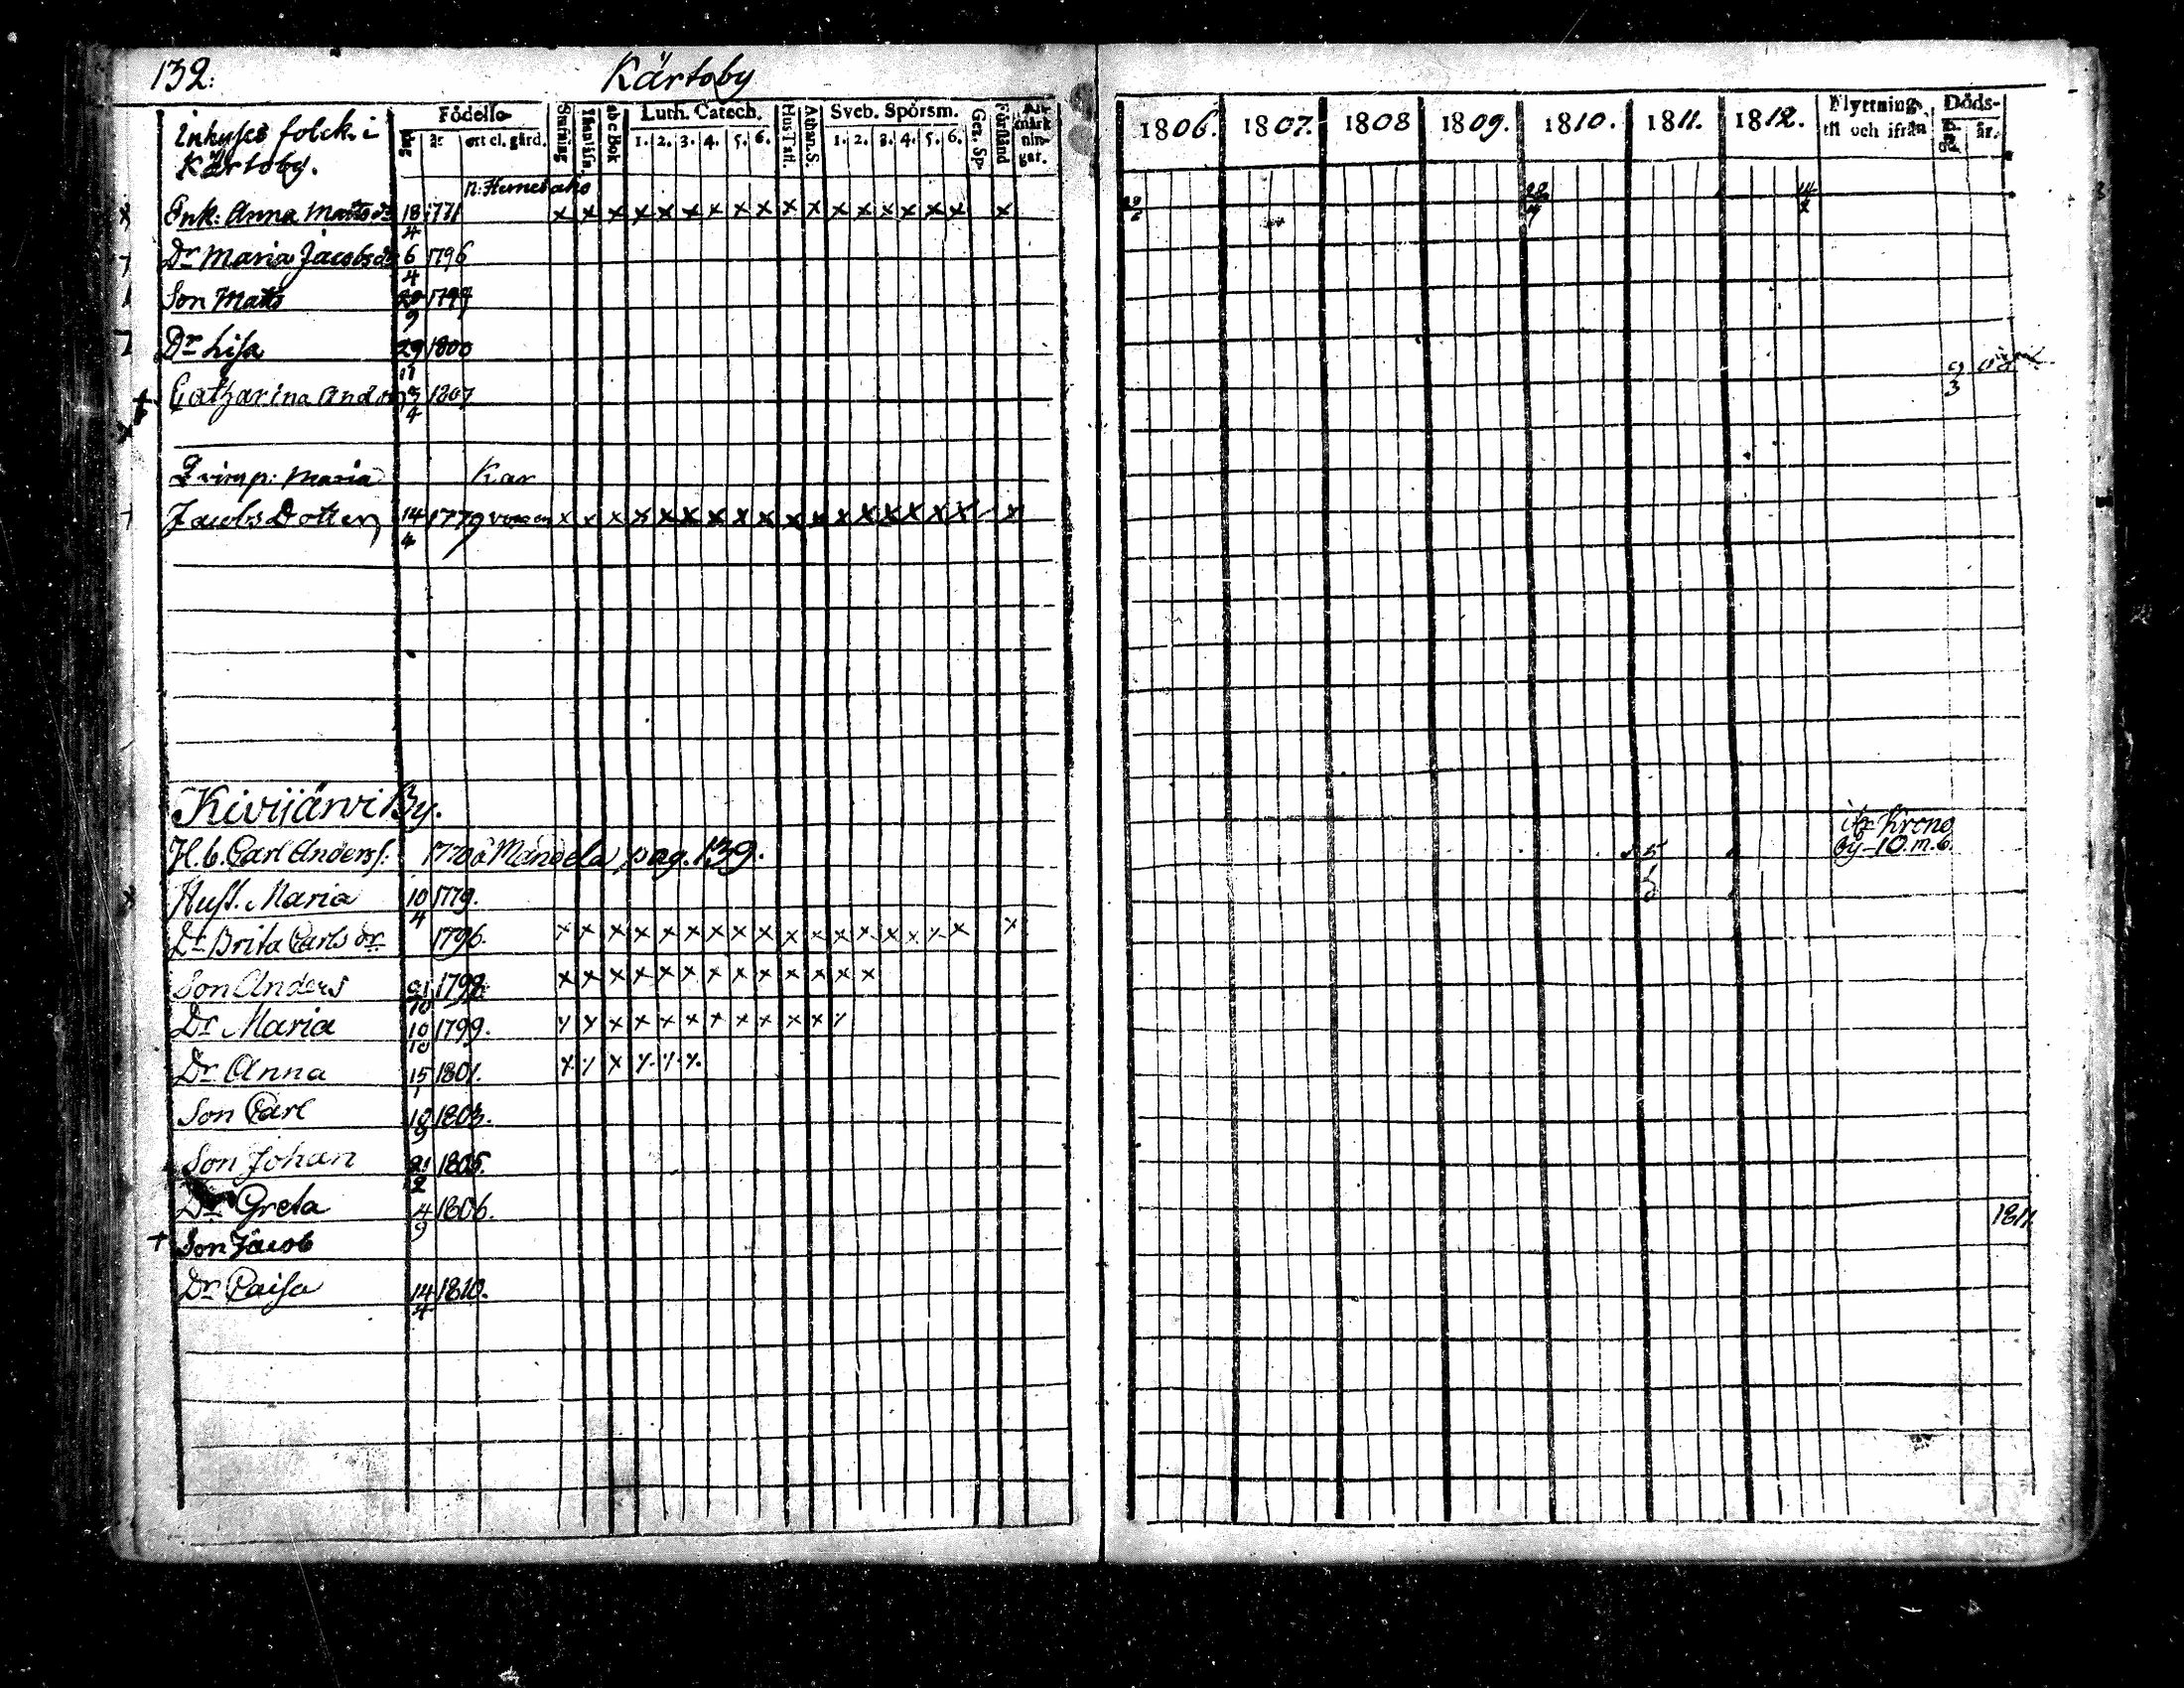 132.
Kärtoby
Inhyses folck i
Kärtoby.
Födelse-
dag
år
ort el. gård.
Stafning
Innanläsn.
abc Bok
Luth. Catech.
1. 2. 3. 4. 5. 6.
Hus Tafl.
Athan. S.
Sveb. Spörsm.
1. 2. 3. 4. 5. 6.
Gez. Sp.
Förstånd
Anmärkningar.
1806. 1807. 1808 1809. 1810. 1811. 1812.
Flyttning
til och ifrån
Döds-
dag
år.
Enk: Anna Matts dr 18/4 1771 x x x x x x x x x x x x x x x x x x
Dr Maria Jacobs dr 6/4 1796
Son Matts 20/9 1797
Dr Lisa 29/11 1800
Catharina And dr 3/4 1807
Qvinp: Maria Kar
Jacobs Dotter 14/4 1779 x x x x x x x x x x x x x x x x x x
Kivijärvi By.
H. b. Carl Anderss: 1770 å Mandela pag. 139.
ifr Krono
by 10 m. 6.
Hust. Maria 10/4 1779.
Dr Brita Carls dr 1796. x x x x x x x x x x x x x x x x x x
Son Anders 21/10 1798. x x x x x x x x x x x x x
Dr Maria 10/10 1799. x x x x x x x x x x x x
Dr Anna 15/1 1801. x x x x x x
Son Carl 18/9 1803.
Son Johan 21/2 1805.
Dr Greta 4/9 1806.
+ Son Jacob 1811.
Dr Caisa 14/4 1810.